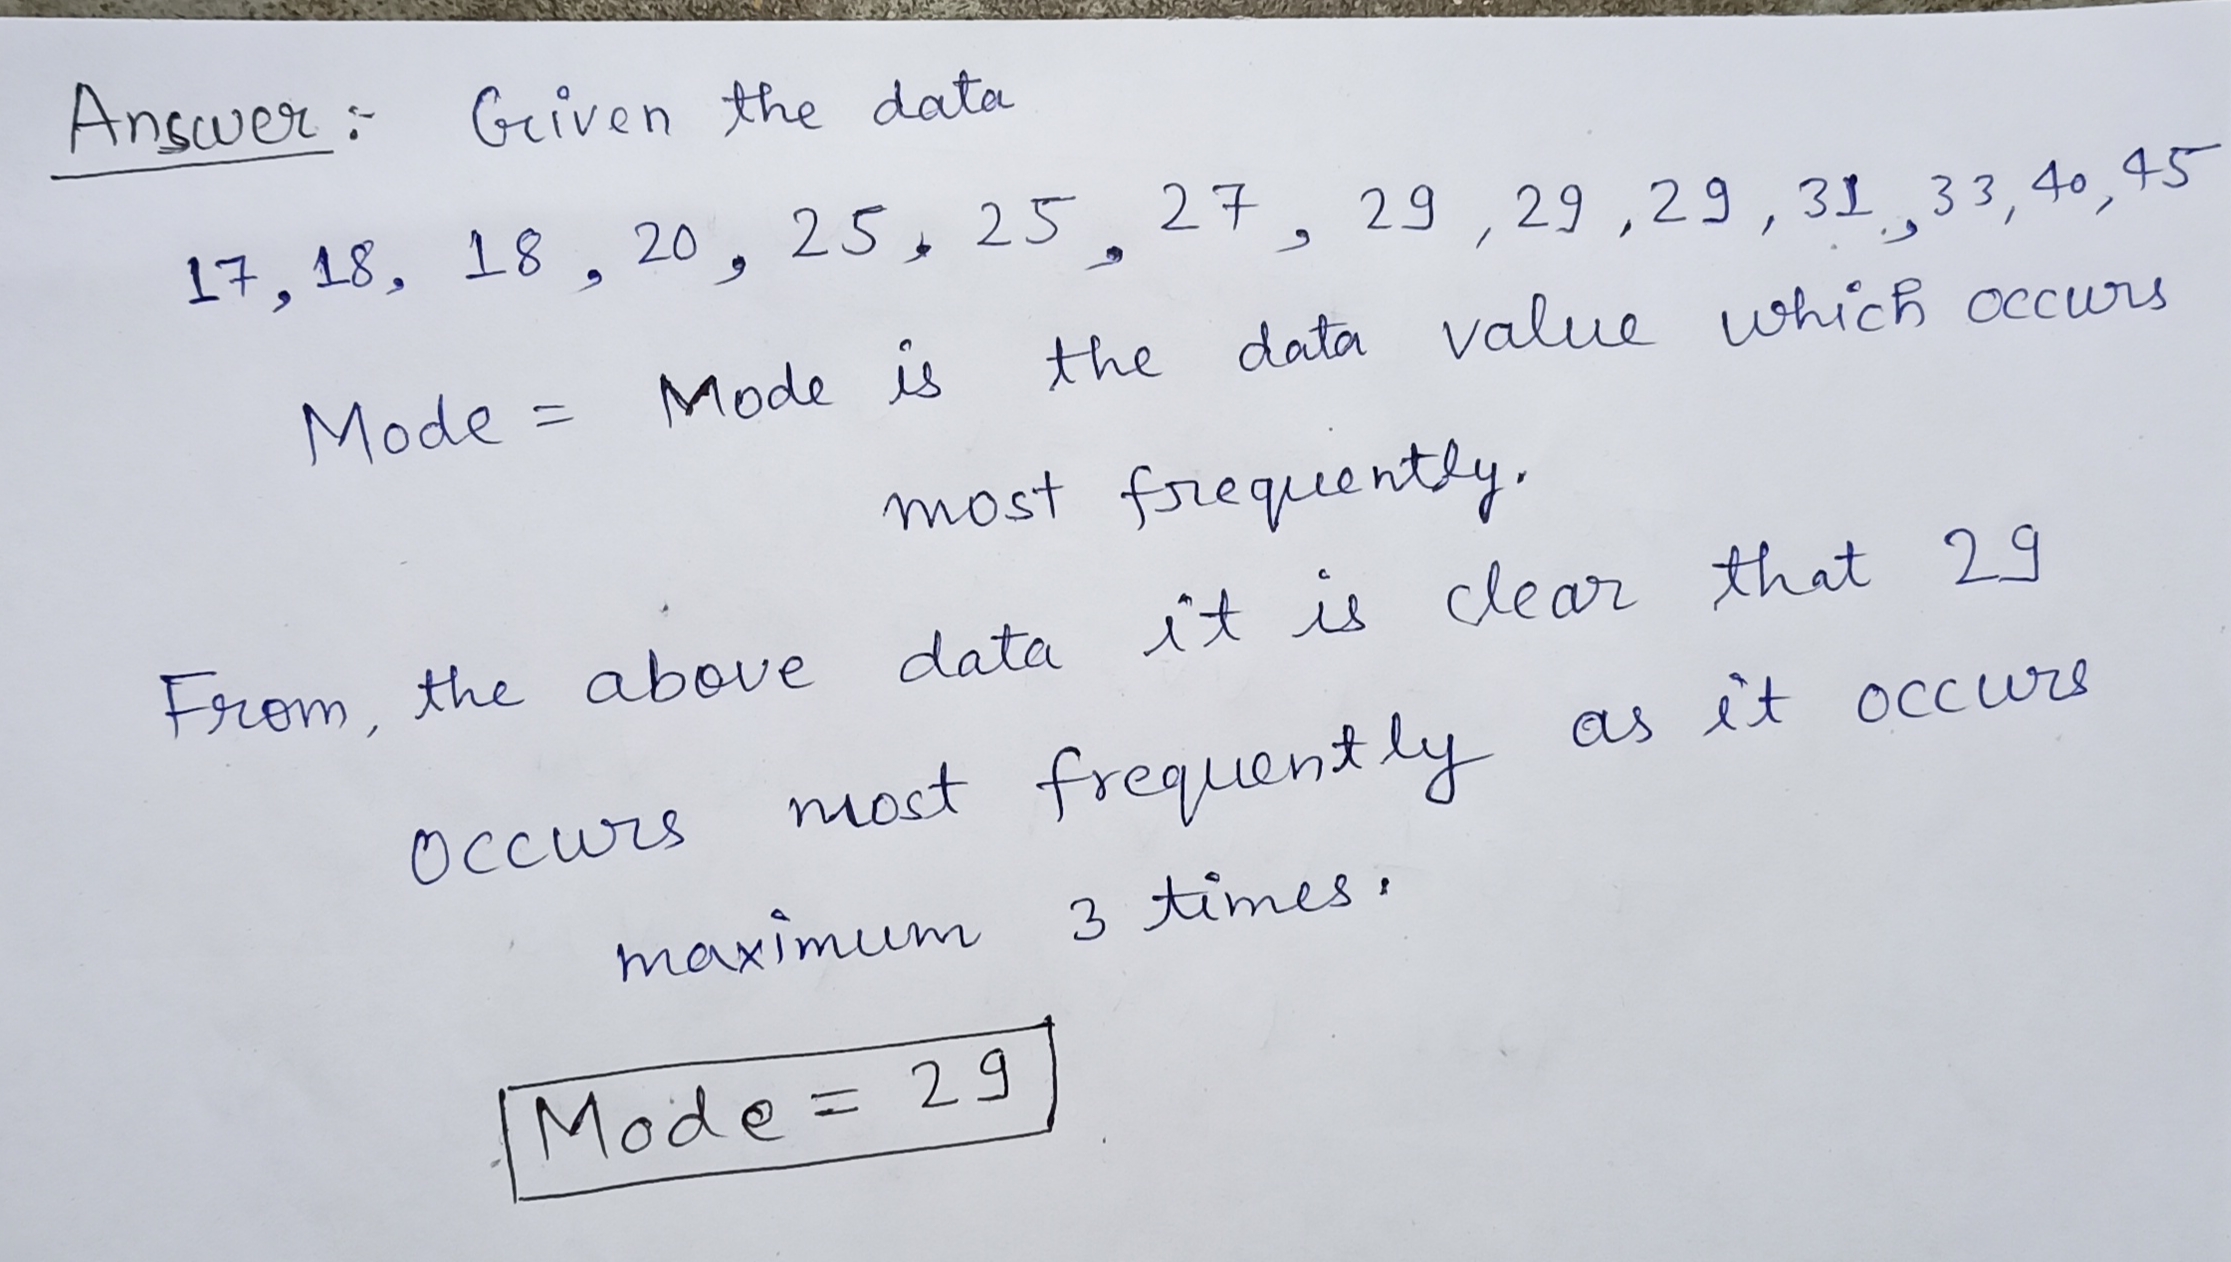 Answer :- Given the data
17, 18, 18, 20, 25, 25, 27, 29, 29, 29, 31, 33, 40, 45
Mode = Mode is the data value which occurs
most frequently.
From, the above data it is clear that 29
occurs most frequently as it occurs
maximum 3 times.
Mode = 29